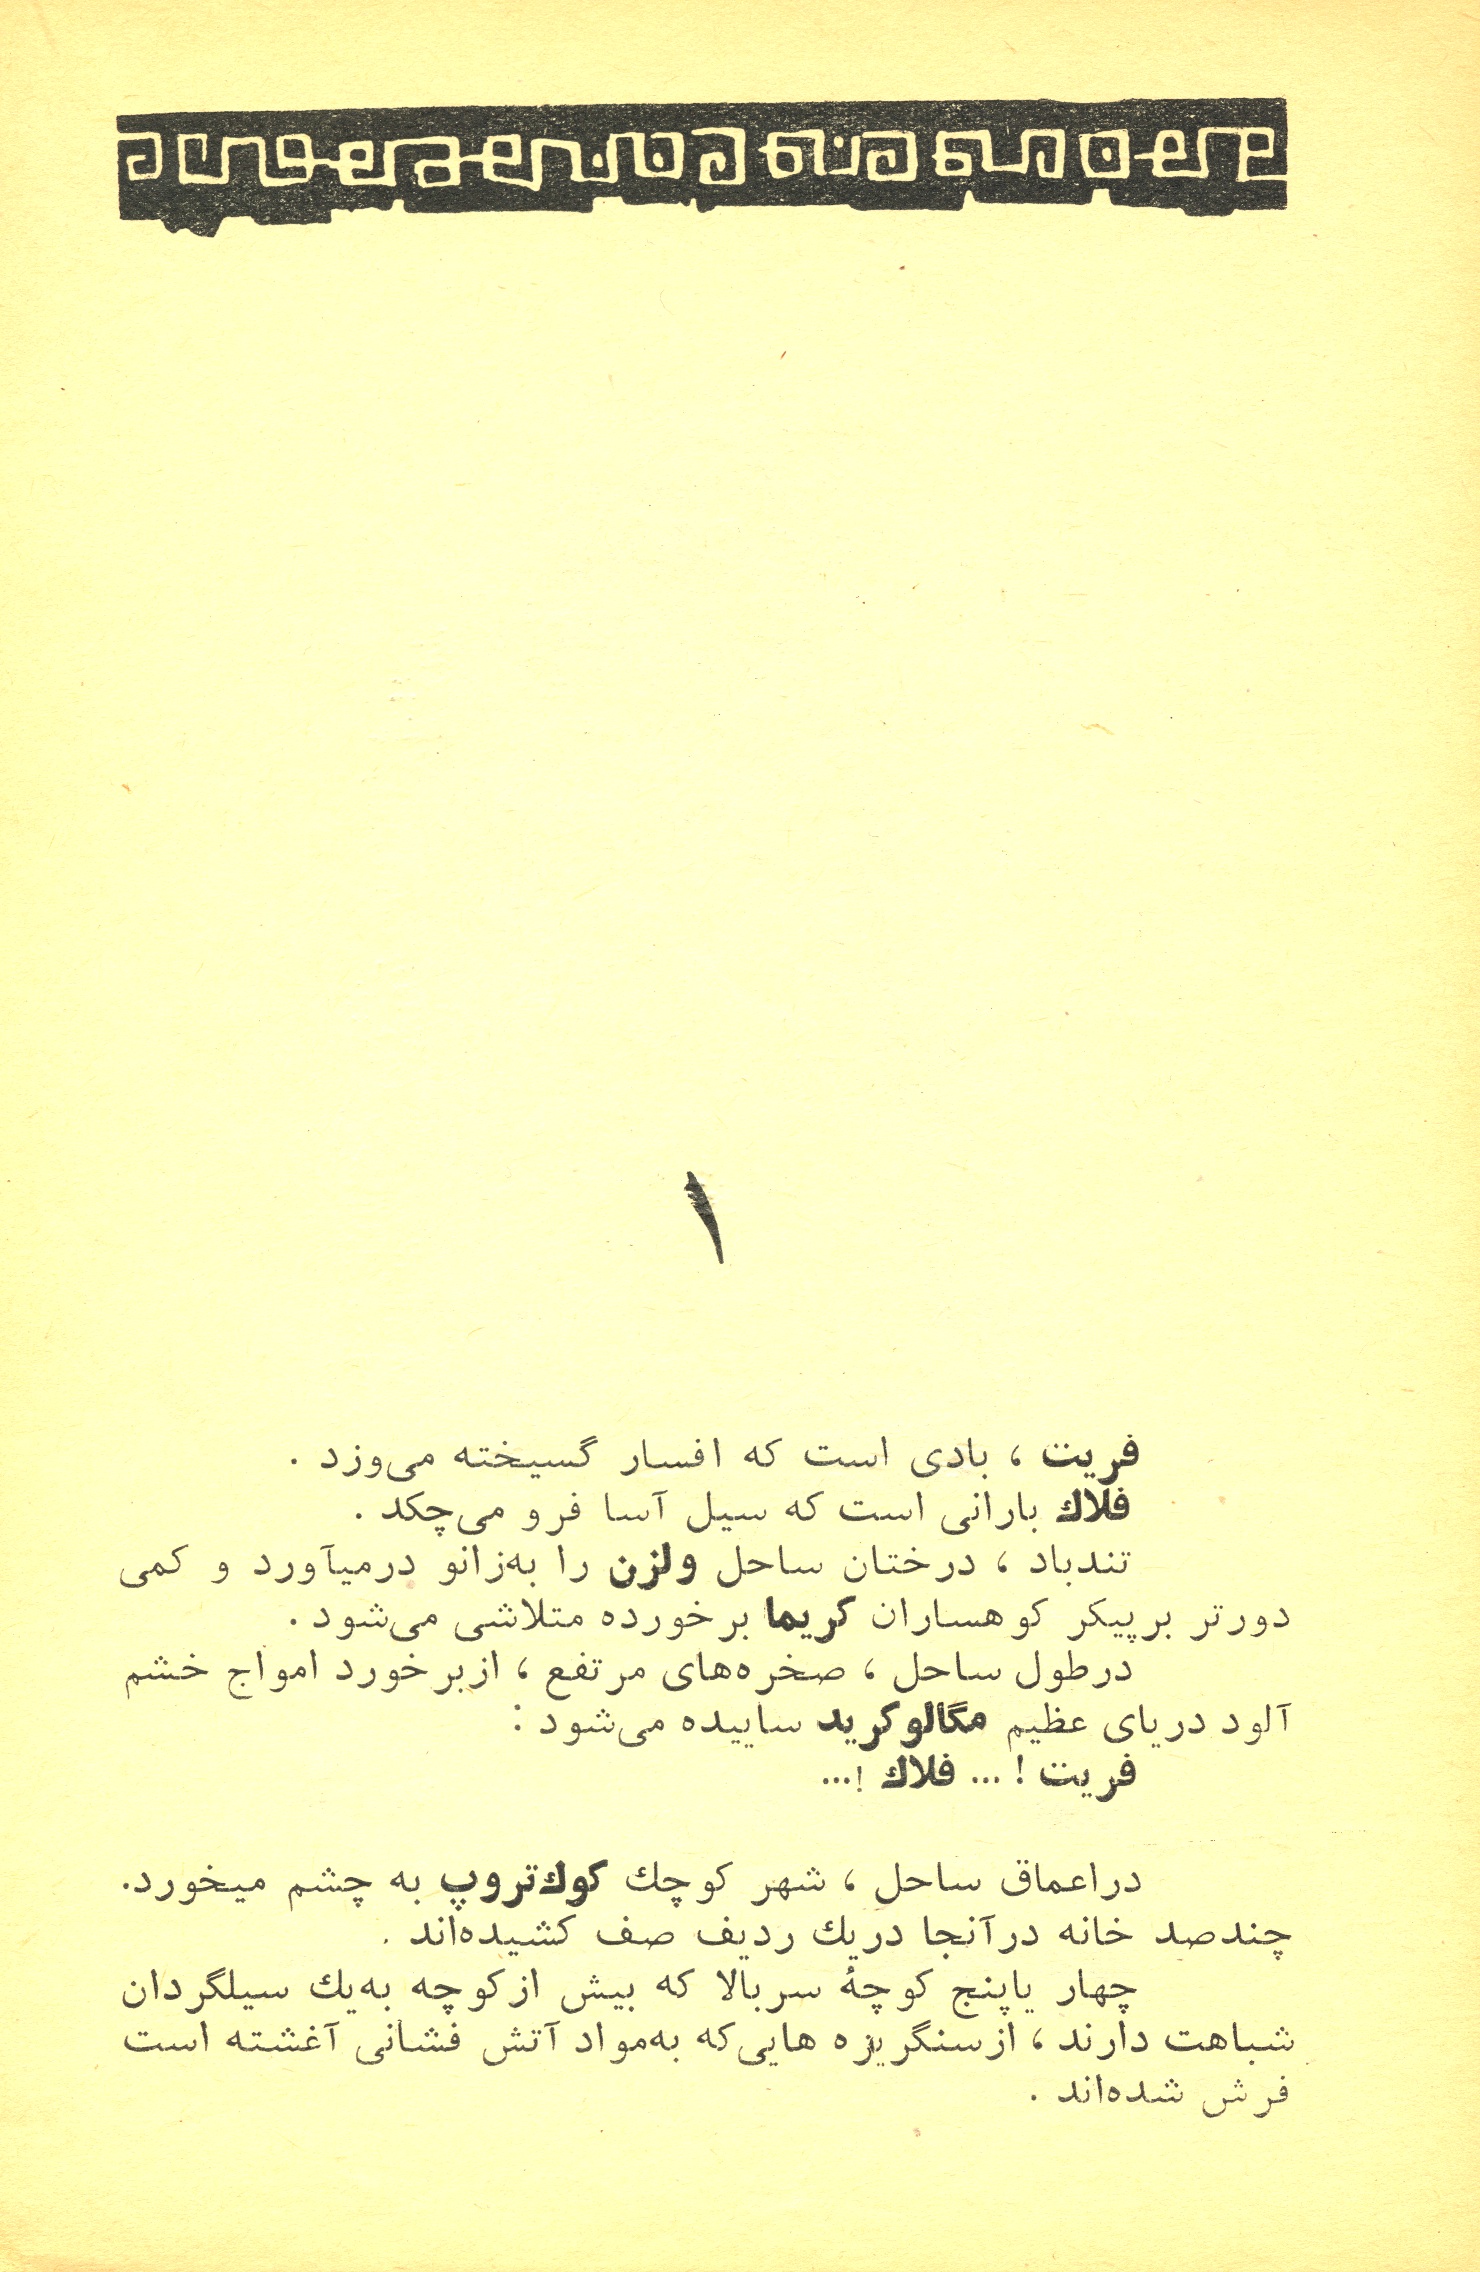 ۱
فریت ، بادی است که افسار گسیخته می‌وزد .
فلاك بارانی است که سیل آسا فرو می‌چکد .
تندباد ، درختان ساحل ولزن را به‌زانو درمیآورد و کمی
دورتر برپیکر کوهساران کریما برخورده متلاشی می‌شود .
درطول ساحل ، صخره‌های مرتفع ، ازبرخورد امواج خشم
آلود دریای عظیم مگالوکرید ساییده می‌شود :
فریت ! ... فلاك !...
دراعماق ساحل ، شهر کوچك کوك‌تروپ به چشم میخورد.
چندصد خانه درآنجا دریك ردیف صف کشیده‌اند .
چهار یاپنج کوچهٔ سربالا که بیش ازکوچه به‌یك سیلگردان
شباهت دارند ، ازسنگریزه هایی‌که به‌مواد آتش فشانی آغشته است
فرش شده‌اند .